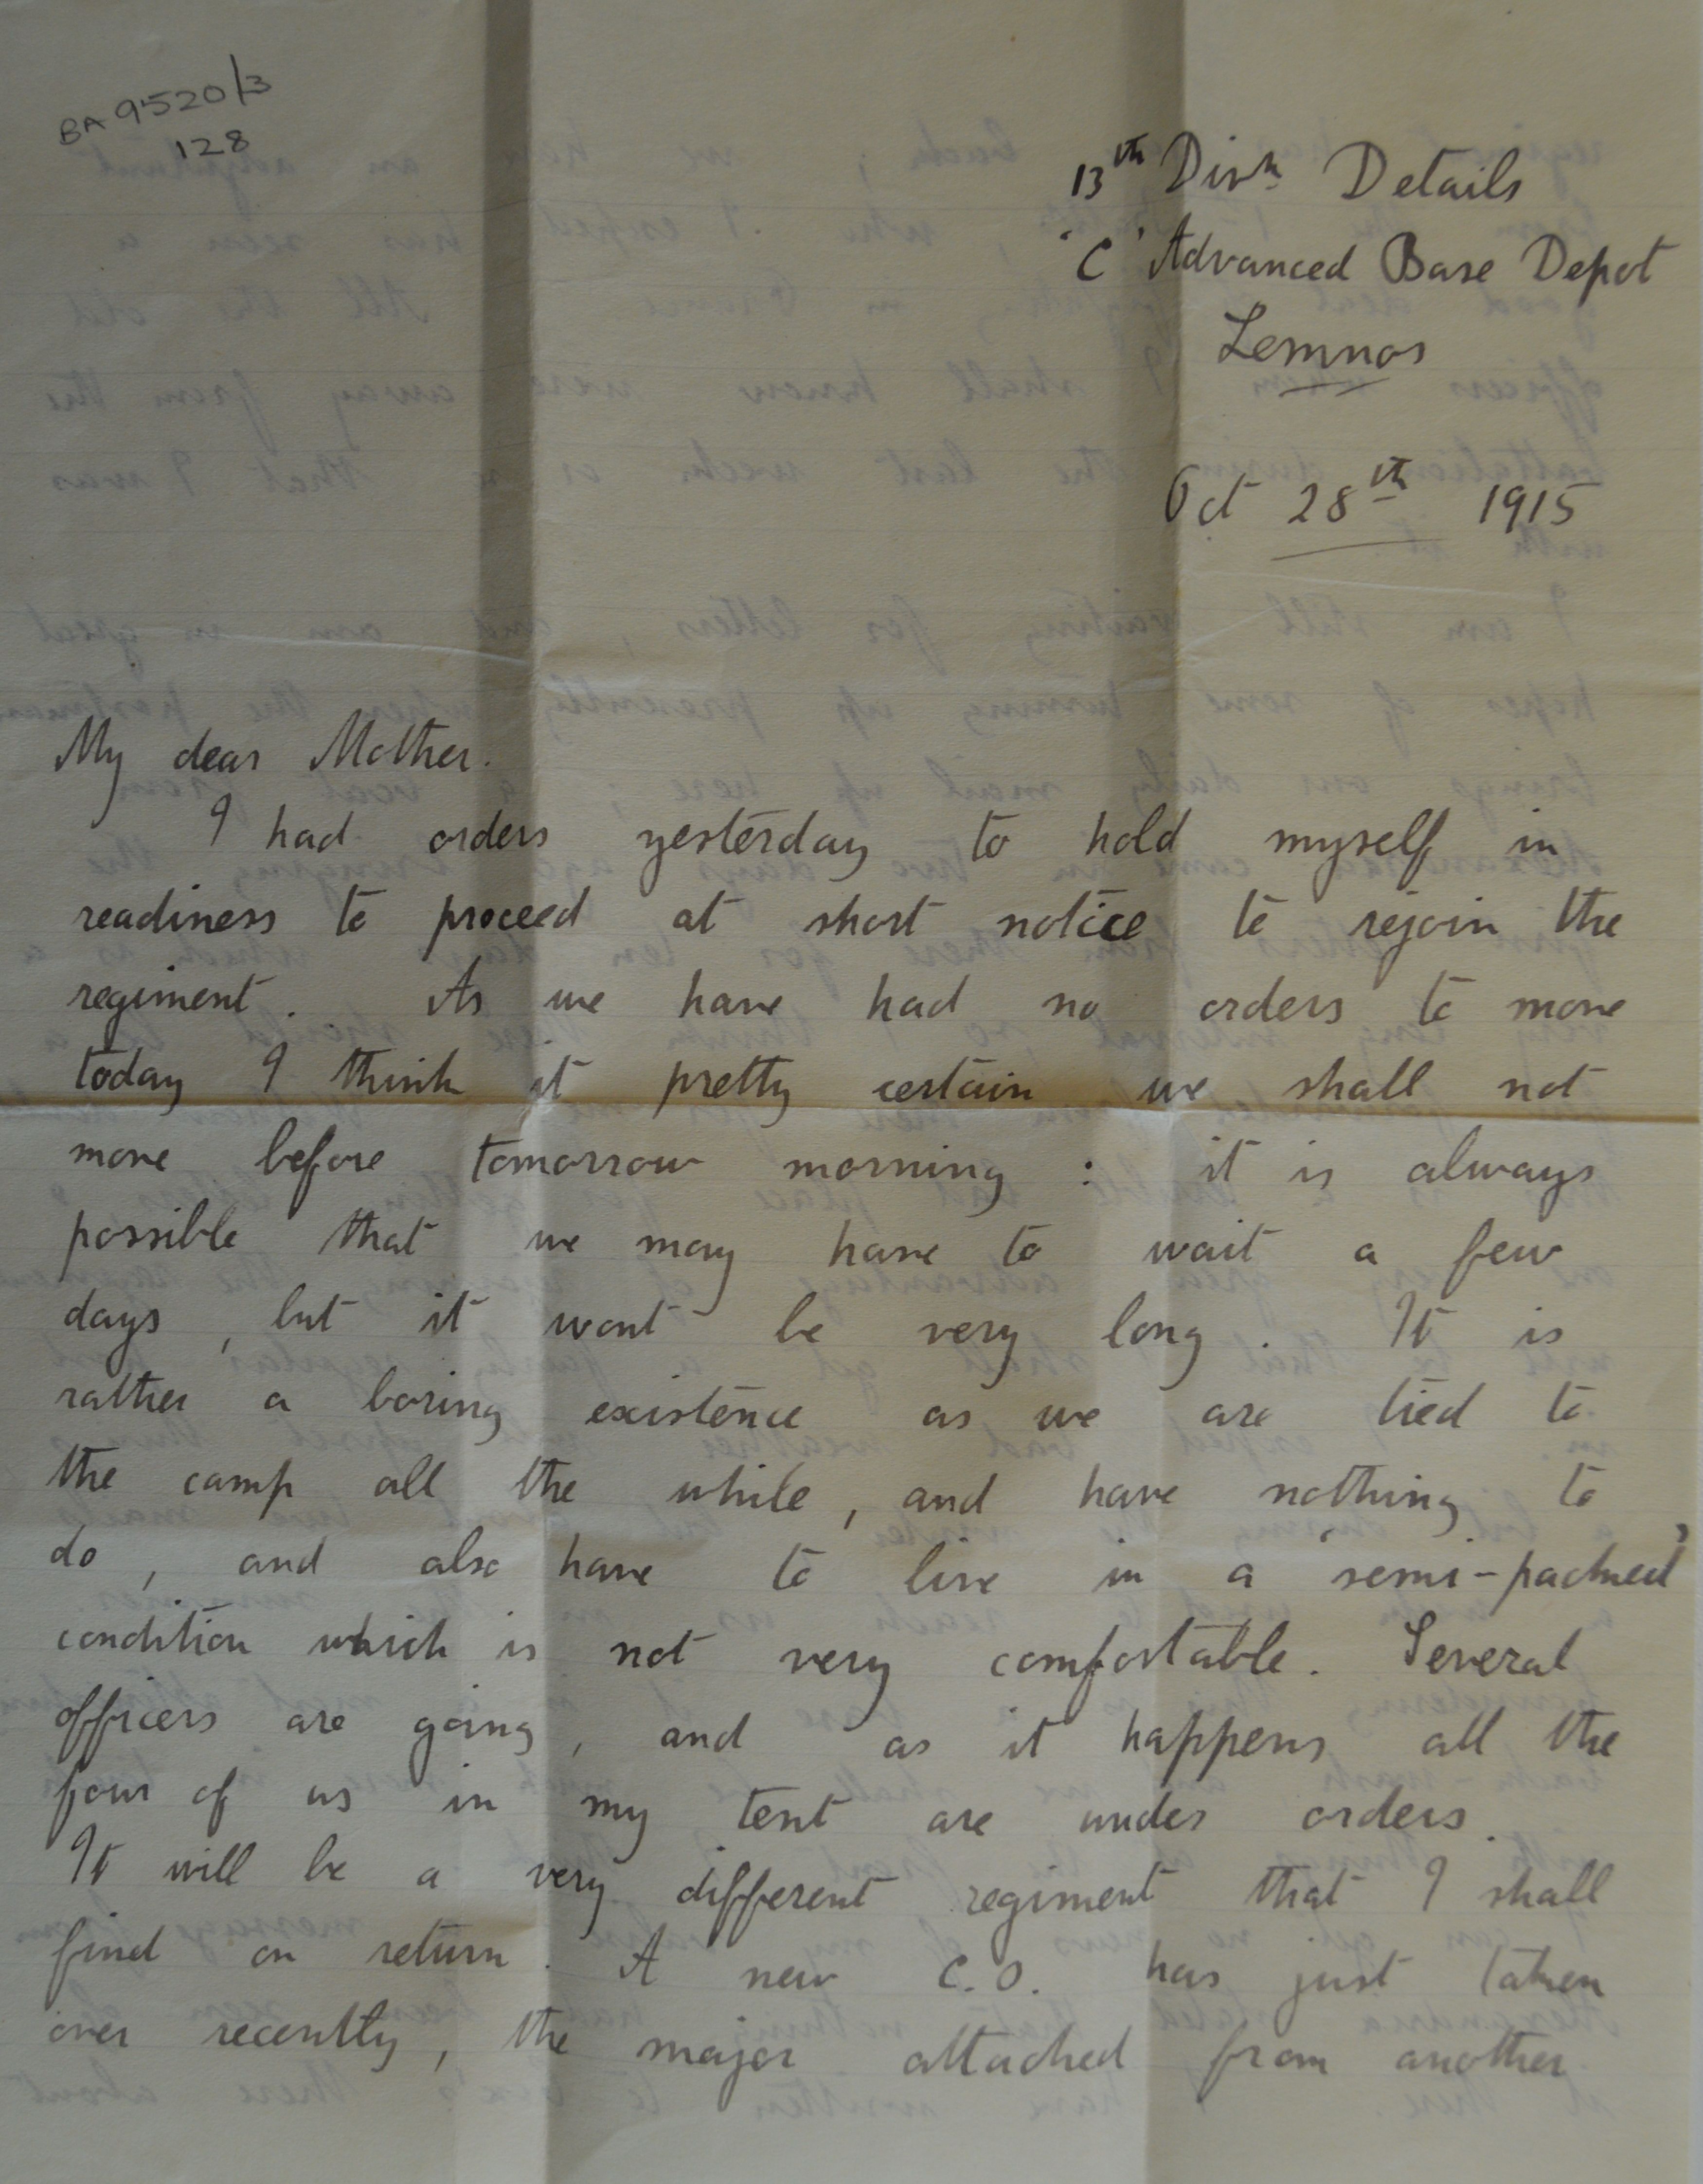 BA 9520/3
128
13th Divn Details
'C' Advanced Base Depot
Lemnos
Oct 28th 1915
My dear Mother.
I had orders yesterday to hold myself in
readiness to proceed at short notice to rejoin the
regiment. As we have had no orders to move
today I think it pretty certain we shall not
move before tomorrow morning : it is always
possible that we may have to wait a few
days, but it wont be very long. It is
rather a boring existence as we are tied to
the camp all the while, and have nothing to
do, and also have to live in a 'semi-packed'
condition which is not very comfortable. Several
officers are going, and as it happens all the
four of us in my tent are under orders.
It will be a very different regiment that I shall
find on return. A new C.O. has just taken
over recently, the major attached from another